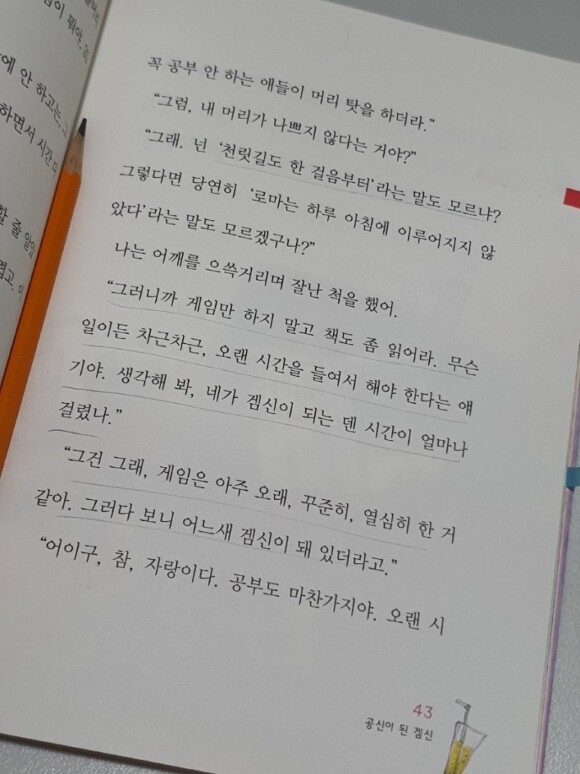 꼭 공부 안 하는 애들이 머리 탓을 하더라.”
“그럼, 내 머리가 나쁘지 않다는 거야?”
“그래. 넌 ‘천릿길도 한 걸음부터’라는 말도 모르냐?
그렇다면 당연히 ‘로마는 하루 아침에 이루어지지 않
았다’라는 말도 모르겠구나?”
나는 어깨를 으쓱거리며 잘난 척을 했어.
“그러니까 게임만 하지 말고 책도 좀 읽어라. 무슨
일이든 차근차근, 오랜 시간을 들여서 해야 한다는 얘
기야. 생각해 봐, 네가 겜신이 되는 덴 시간이 얼마나
걸렸나.”
“그건 그래, 게임은 아주 오래, 꾸준히, 열심히 한 거
같아. 그러다 보니 어느새 겜신이 돼 있더라고.”
“어이구, 참, 자랑이다. 공부도 마찬가지야. 오랜 시
43
공신이 된 겜신
안 하고는,
하면서 시간
줄